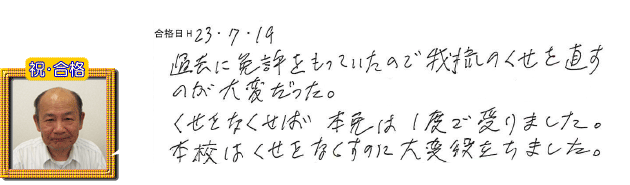 合格日H 23・7・19
祝・合格
過去に免許をもっていたので我流のくせを直す
のが大変だった。
くせをなくせば本免は1度で受りました。
本校はくせをなくすのに大変役をちました。